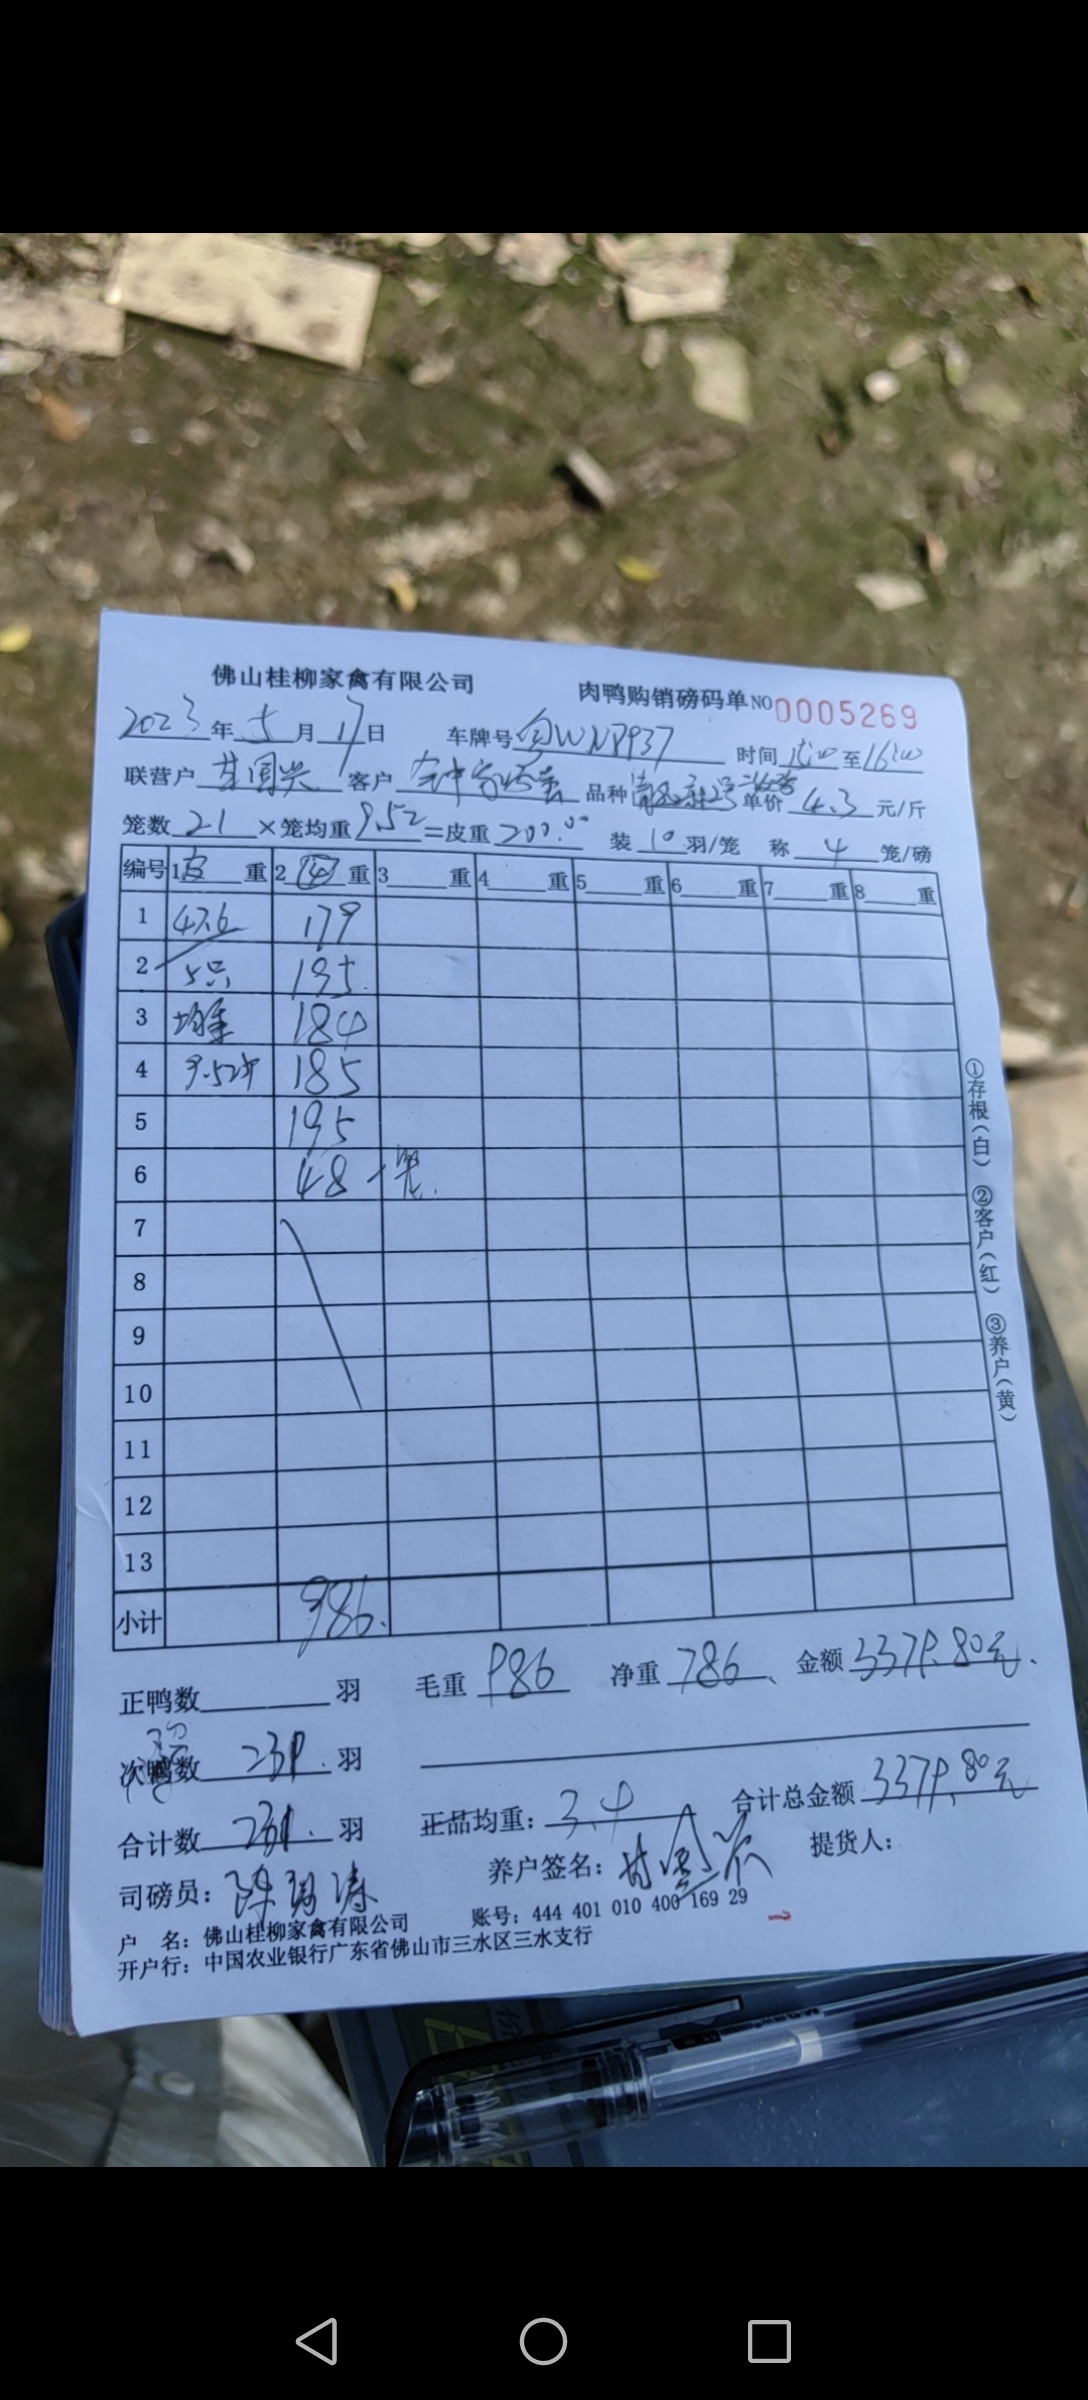 佛山桂柳家禽有限公司 肉鸭购销磅码单 NO 0005269
2023年5月17日 车牌号 WNP937 时间 至16:00
联营户 国兴 客户 品种 单价 4.3 元/斤
笼数 21 ×笼均重 9.52 =皮重 200.00 装 10 羽/笼 称 4 笼/磅
编号 1皮重 2 重 3 重 4 重 5 重 6 重 7 重 8 重
1 47.6 179
2 5只 195
3 均重 184
4 9.52斤 185
5 195
6 48 一笼.
7
8
9
10
11
12
13
小计 986.
①存根(白) ②客户(红) ③养户(黄)
正鸭数 羽 毛重 986 净重 786 金额 3379.80元
次鸭数 239. 羽
合计数 239. 羽 正品均重: 3.4 合计总金额 3379.80元
司磅员: 陈 涛 养户签名: 国兴 提货人:
户 名: 佛山桂柳家禽有限公司 账号: 444 401 010 400 169 29
开户行: 中国农业银行广东省佛山市三水区三水支行